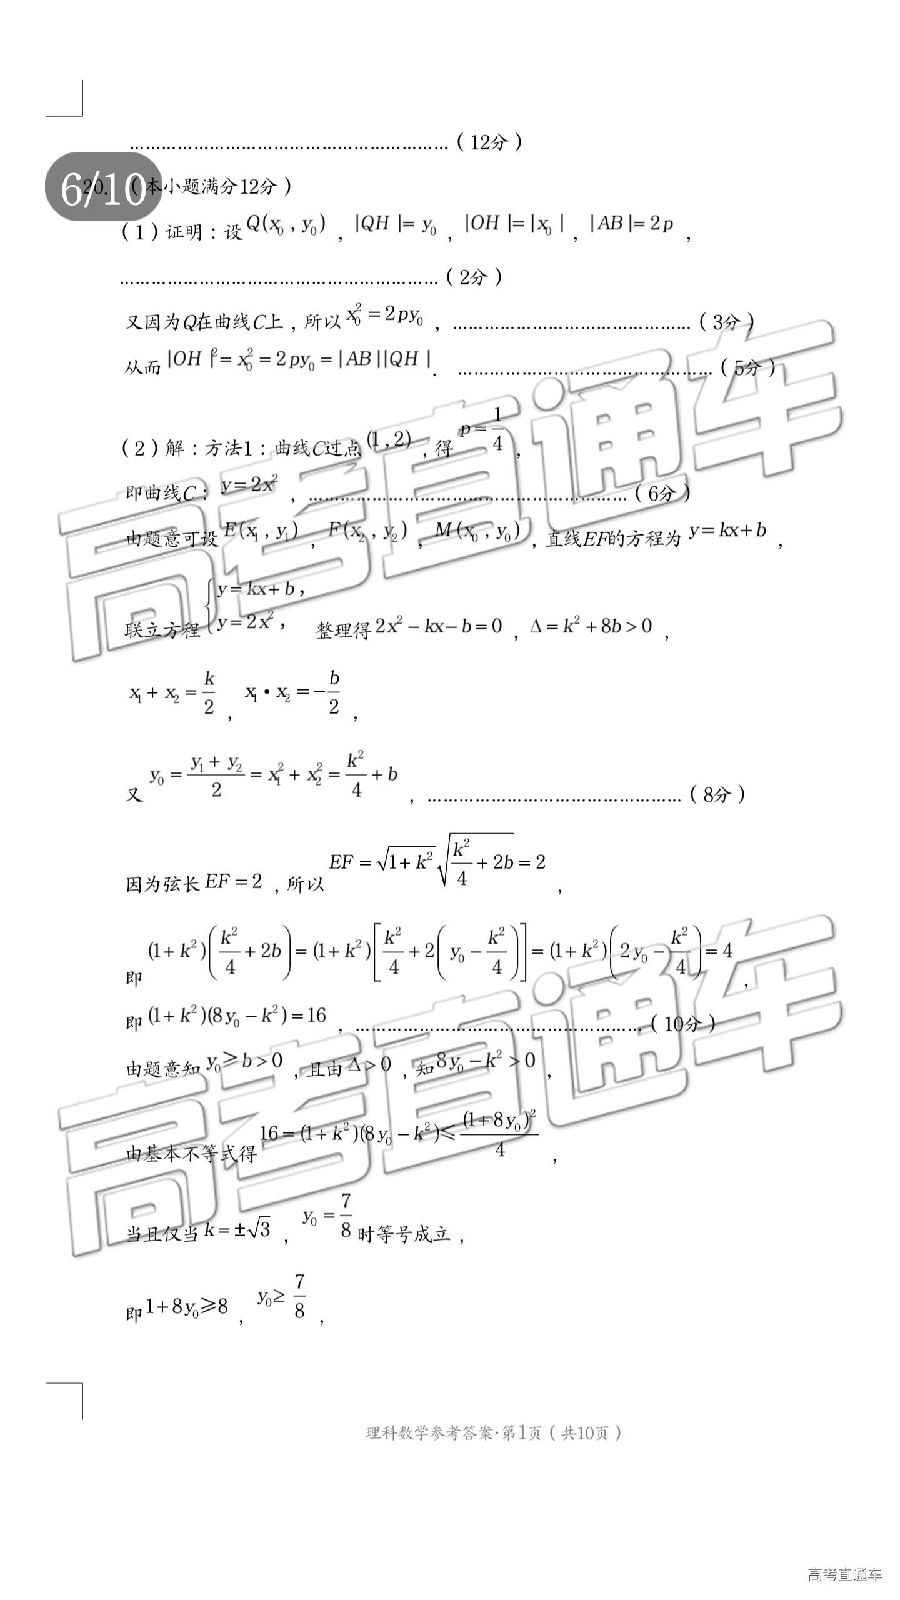 ……………………………………………………（12分）
6/10
20.（本小题满分12分）
（1）证明：设Q(x₀，y₀)，|QH|=y₀，|OH|=|x₀|，|AB|=2p，
……………………………………………………（2分）
又因为Q在曲线C上，所以x₀²=2py₀，………………………………………（3分）
从而|OH|²=x₀²=2py₀=|AB||QH|．…………………………………………（5分）
（2）解：方法1：曲线C过点(1，2)，得p=1/4，
即曲线C：y=2x²，……………………………………………………（6分）
由题意可设E(x₁，y₁)，F(x₂，y₂)，M(x₀，y₀)，直线EF的方程为y=kx+b，
联立方程{y=kx+b，y=2x²，整理得2x²-kx-b=0，Δ=k²+8b>0，
x₁+x₂=k/2，x₁•x₂=-b/2，
又y₀=(y₁+y₂)/2=x₁²+x₂²=k²/4+b，…………………………………………（8分）
因为弦长EF=2，所以EF=√(1+k²)√(k²/4+2b)=2，
即(1+k²)(k²/4+2b)=(1+k²)[k²/4+2(y₀-k²/4)]=(1+k²)(2y₀-k²/4)=4，
即(1+k²)(8y₀-k²)=16，………………………………………………（10分）
由题意知y₀≥b>0，且由Δ>0，知8y₀-k²>0，
由基本不等式得16=(1+k²)(8y₀-k²)≤(1+8y₀)²/4，
当且仅当k=±√3，y₀=7/8时等号成立，
即1+8y₀≥8，y₀≥7/8，
理科数学参考答案·第1页（共10页）
高考直通车
高考直通车
高考直通车